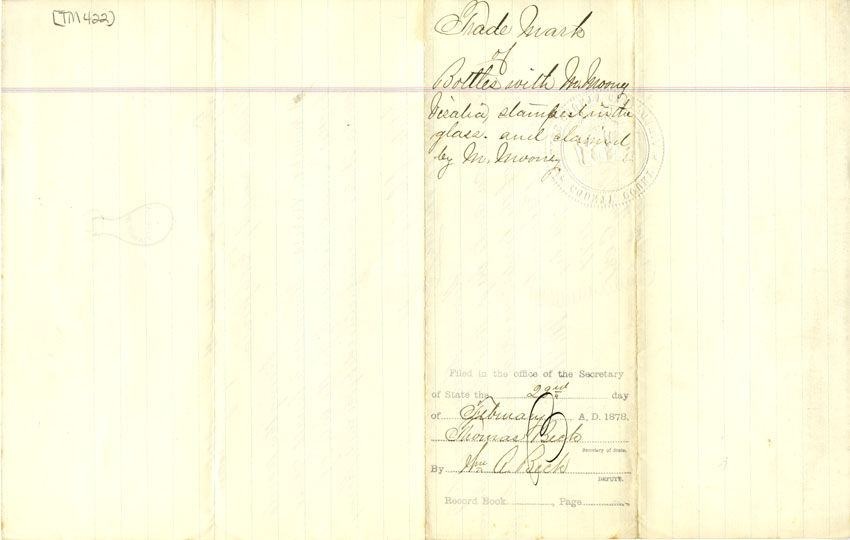 [TM 422]
Trade Mark
of
Bottles with M. Mooney
Visalia stamped in the
glass. and claimed
by M. Mooney
COUNTY COURT
Filed in the office of the Secretary
of State the 22nd day
of February A. D. 1878.
Thomas Beck
Secretary of State.
By Wm A. Beck
DEPUTY.
Record Book, Page